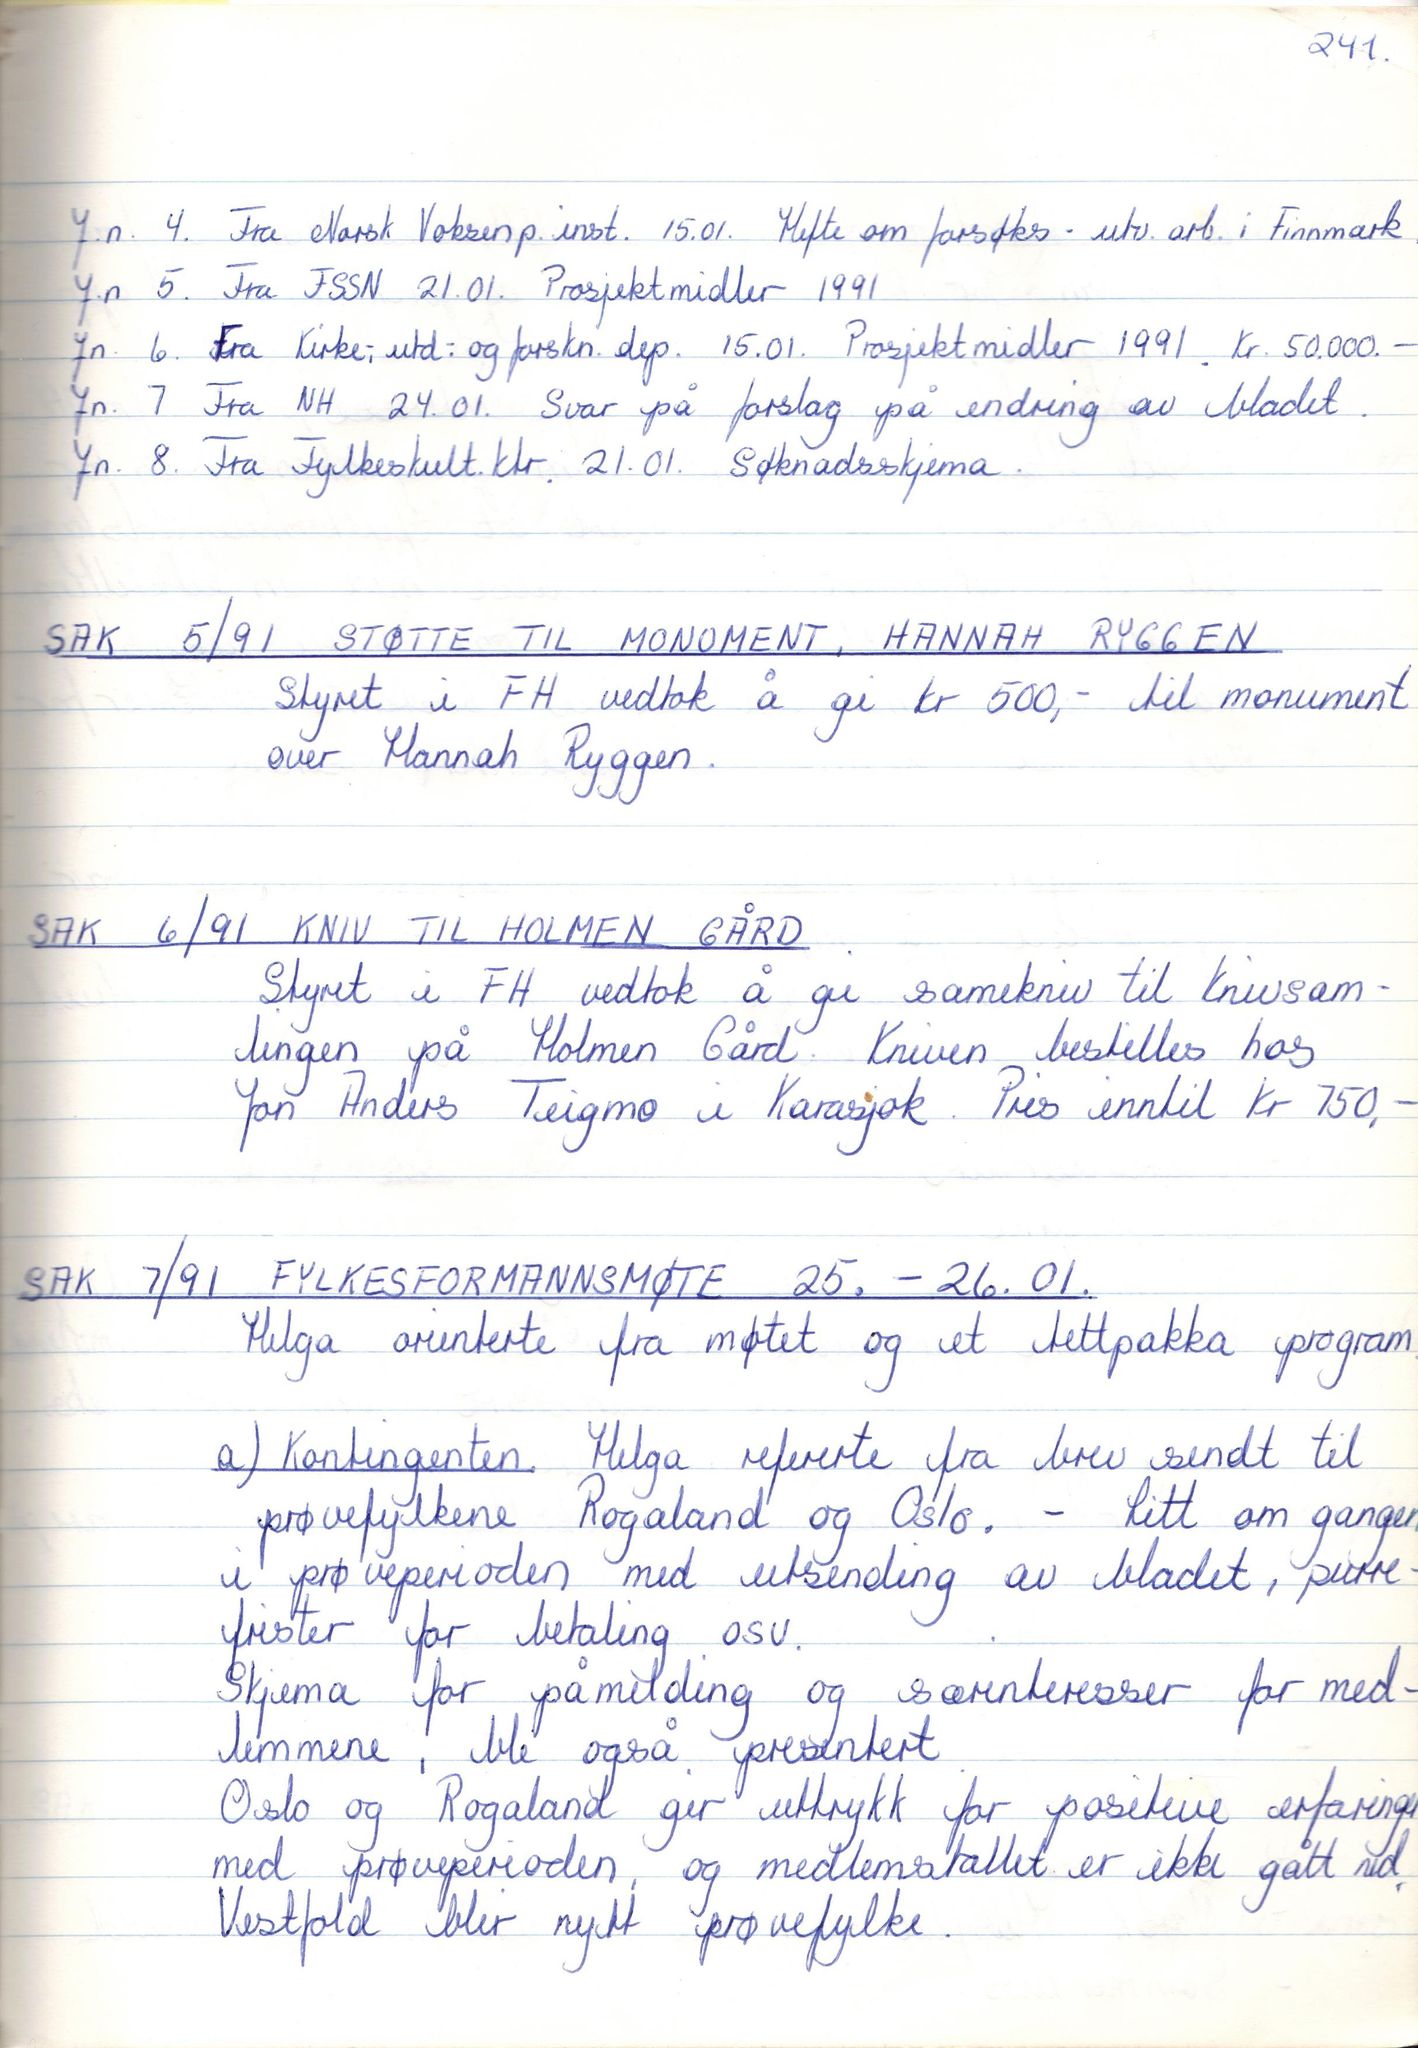 241.
J.n. 4. Fra Norsk Voksenp. inst. 15.01. Hefte om forsøks- utv. arb. i Finnmark.
J.n 5. Fra FSSN 21.01. Prosjektmidler 1991
Jn. 6. Fra Kirke-, utd.- og forskn. dep. 15.01. Prosjektmidler 1991. Kr. 50.000.-
Jn. 7 Fra NH 24.01. Svar på forslag på endring av bladet.
Jn. 8. Fra Fylkeskult.ktr. 21.01. Søknadsskjema.
SAK 5/91 STØTTE TIL MONOMENT, HANNAH RYGGEN
Styret i FH vedtok å gi kr 500,- til monument
over Hannah Ryggen.
SAK 6/91 KNIV TIL HOLMEN GÅRD
Styret i FH vedtok å gi samekniv til Knivsam-
lingen på Holmen Gård. Kniven bestilles hos
Jon Anders Teigmo i Karasjok. Pris inntil kr 750,-
SAK 7/91 FYLKESFORMANNSMØTE 25. - 26.01.
Helga orienterte fra møtet og et tettpakka program.
a) Kontingenten. Helga refererte fra brev sendt til
prøvefylkene Rogaland og Oslo. - Litt om gangen
i prøveperioden med utsending av bladet, purre-
frister for betaling osv.
Skjema for påmelding og særinteresser for med-
lemmene, ble også presentert
Oslo og Rogaland gir uttrykk for positive erfaringer
med prøveperioden, og medlemstallet er ikke gått ned.
Vestfold blir nytt prøvefylke.